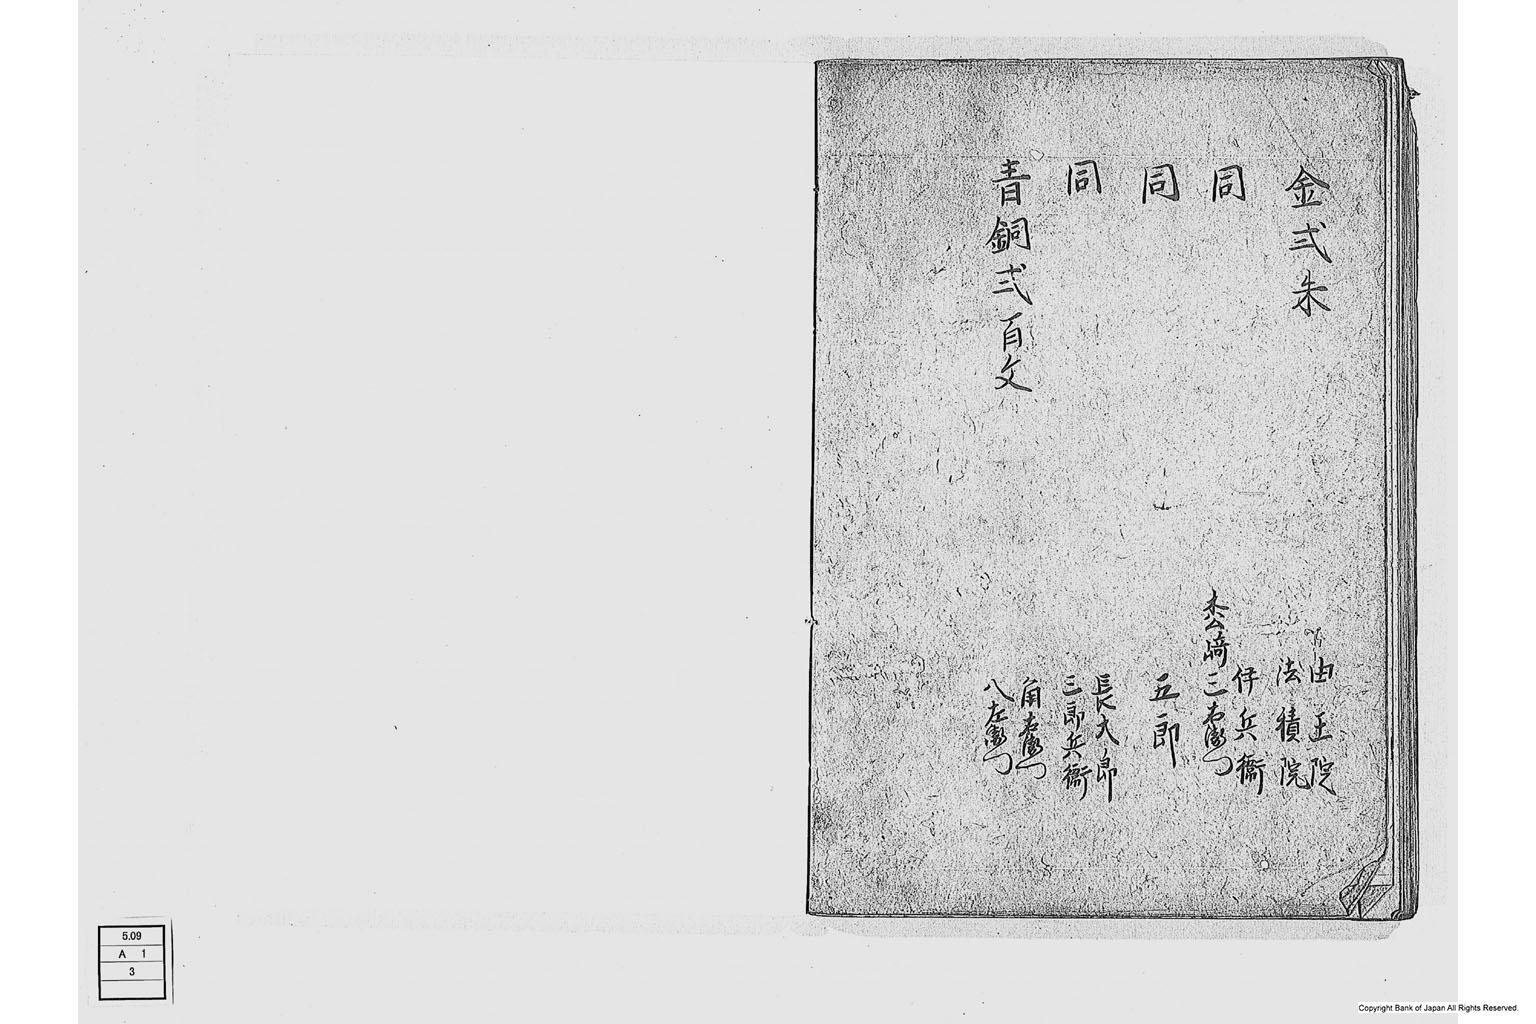 金弐朱
由王院
法積院
同
伊兵衞
松崎三右衛門
同
五郎
同
長大郎
三郎兵衞
青銅弐百文
角右衛門
八左衛門
5.09
A 1
3
Copyright Bank of Japan All Rights Reserved.